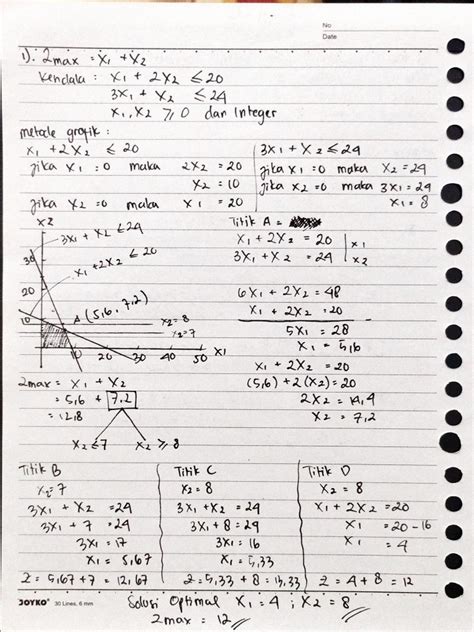 No
Date
1). Zmax = X1 + X2
Kendala : X1 + 2X2 ≤ 20
3X1 + X2 ≤ 24
X1, X2 ≥ 0 dan Integer
metode grafik :
X1 + 2X2 ≤ 20
jika X1 = 0 maka 2X2 = 20
X2 = 10
jika X2 = 0 maka X1 = 20
3X1 + X2 ≤ 24
jika X1 = 0 maka X2 = 24
jika X2 = 0 maka 3X1 = 24
X1 = 8
X2
3X1 + X2 ≤ 24
X1 + 2X2 ≤ 20
30
20
10
A (5,6, 7,2)
X2 = 8
X2 = 7
10 20 30 40 50 X1
Titik A =
X1 + 2X2 = 20 | X1
3X1 + X2 = 24 | X2
6X1 + 2X2 = 48
X1 + 2X2 = 20
5X1 = 28
X1 = 5,6
X1 + 2X2 = 20
(5,6) + 2(X2) = 20
2X2 = 14,4
X2 = 7,2
Zmax = X1 + X2
= 5,6 + 7,2
= 12,8
X2 ≤ 7 X2 ≥ 8
Titik B
X2 = 7
3X1 + X2 = 24
3X1 + 7 = 24
3X1 = 17
X1 = 5,67
Z = 5,67 + 7 = 12,67
Titik C
X2 = 8
3X1 + X2 = 24
3X1 + 8 = 24
3X1 = 16
X1 = 5,33
Z = 5,33 + 8 = 13,33
Titik D
X2 = 8
X1 + 2X2 = 20
X1 = 20 - 16
X1 = 4
Z = 4 + 8 = 12
JOYKO 30 Lines, 6 mm
Solusi Optimal X1 = 4 ; X2 = 8
Zmax = 12